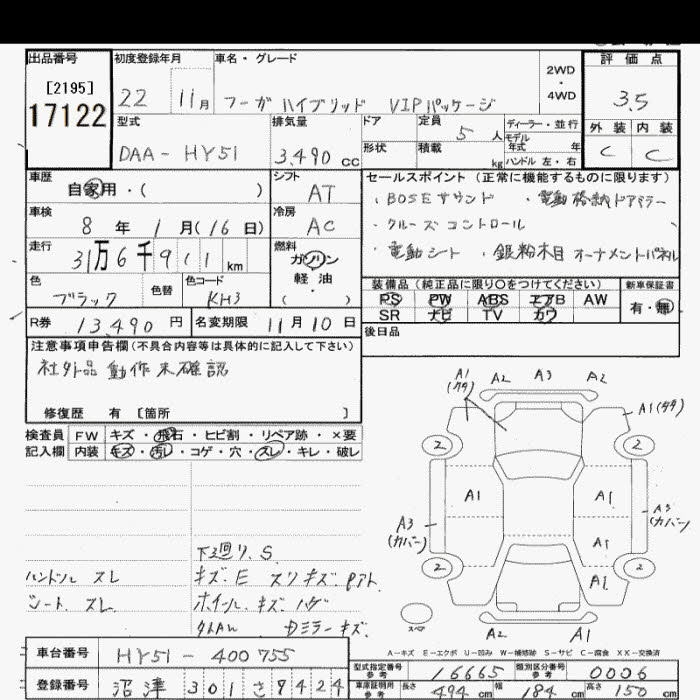 出品番号 初度登録年月 車名・グレード 評価点
[2195]
17122
22 11月 フーガハイブリッド VIPパッケージ 2WD・4WD 3.5
型式 排気量 ドア 定員 5人 ディーラー・並行 外装 内装
モデル年式 年式
DAA-HY51 3,490cc 形状 積載 kg ハンドル 左・右 C C
車歴 シフト セールスポイント(正常に機能するものに限ります)
自家用・( ) AT ・BOSEサウンド ・電動格納ドアミラー
車検 冷房 ・クルーズコントロール
8年1月(16日) AC
走行 燃料 ・電動シート・銀粉木目オーナメントパネル
31万6千911km ガソリン
軽・油
( )
色 色替 色コード 装備品(純正品に限り○をつけてください) 新車保証書
ブラック KH3 PS PW ABS エアB AW 有・無
SR ナビ TV カワ
R券 13,490円 名変期限 11月10日 後日品
注意事項申告欄(不具合内容等は具体的に記入して下さい)
社外品動作未確認
修復歴 有 [箇所 ]
検査員 FW キズ・飛石・ヒビ割・リペア跡・×要
記入欄 内装 キズ・汚レ・コゲ・穴・スレ・キレ・破レ
A1 A2 A3 A2
A1
2 2
A1 A1
A3(カバー) A3(カバー)
A1
2 2
A1
スペア
A2 A1
下廻り.S
ハンドル スレ キズ.E スリキズ
シート.スレ ホイール.キズ.ハゲ
ドアミラーキズ
A-キズ E-エクボ U-凹み W-補修跡 S-サビ C-腐食 XX-交換済
車台番号 HY51-400755
型式指定番号 16665 類別区分番号 0006
登録番号 沼津 301 さ 7424
車庫証明用参考 長さ 494cm 幅 184cm 高さ 150cm